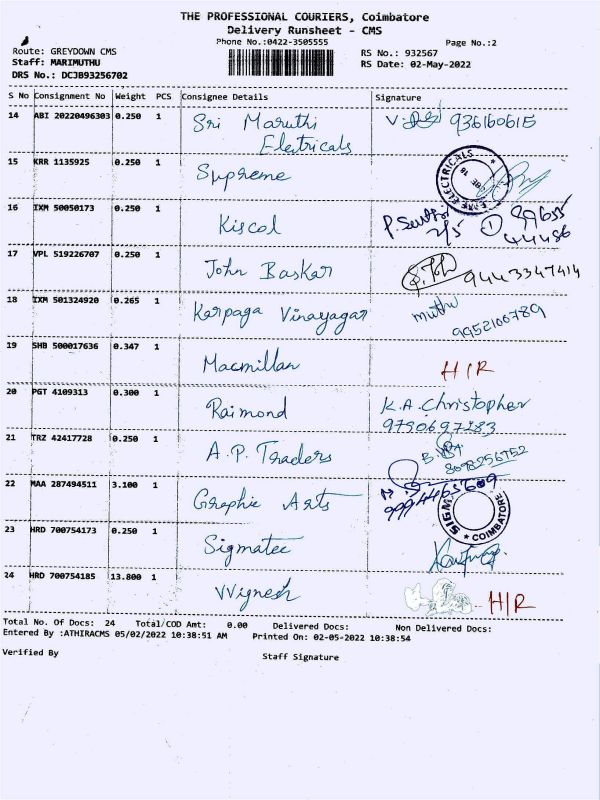 THE PROFESSIONAL COURIERS, Coimbatore
Delivery Runsheet - CMS
Phone No.:0422-3505555 Page No.:2
Route: GREYDOWN CMS RS No.: 932567
Staff: MARIMUTHU RS Date: 02-May-2022
DRS No.: DCJB93256702
S No Consignment No Weight PCS Consignee Details Signature
14 ABI 20220496303 0.250 1 Sri Maruthi 936160615
Eletricals
15 KRR 1135925 0.250 1 Supreme
ELECTRICALS
16 IXM 50050173 0.250 1 Kiscol 2/5 1 99655
44486
17 VPL 519226707 0.250 1 John Baskar 9443347414
18 IXM 501324920 0.265 1 Karpaga Vinayagar muthu
9952100789
19 SHB 500017636 0.347 1 Macmillan H/R
20 PGT 4109313 0.300 1 Raimond K.A.Christopher
9750697283
21 TRZ 42417728 0.250 1 A.P. Traders
8098256752
22 MAA 287494511 3.100 1 Graphic Arts 9994465609
SIGM COIMBATORE
23 HRD 700754173 0.250 1 Sigmatec
24 HRD 700754185 13.800 1 VVignesh H/R
Total No. Of Docs: 24 Total/COD Amt: 0.00 Delivered Docs: Non Delivered Docs:
Entered By :ATHIRACMS 05/02/2022 10:38:51 AM Printed On: 02-05-2022 10:38:54
Verified By Staff Signature